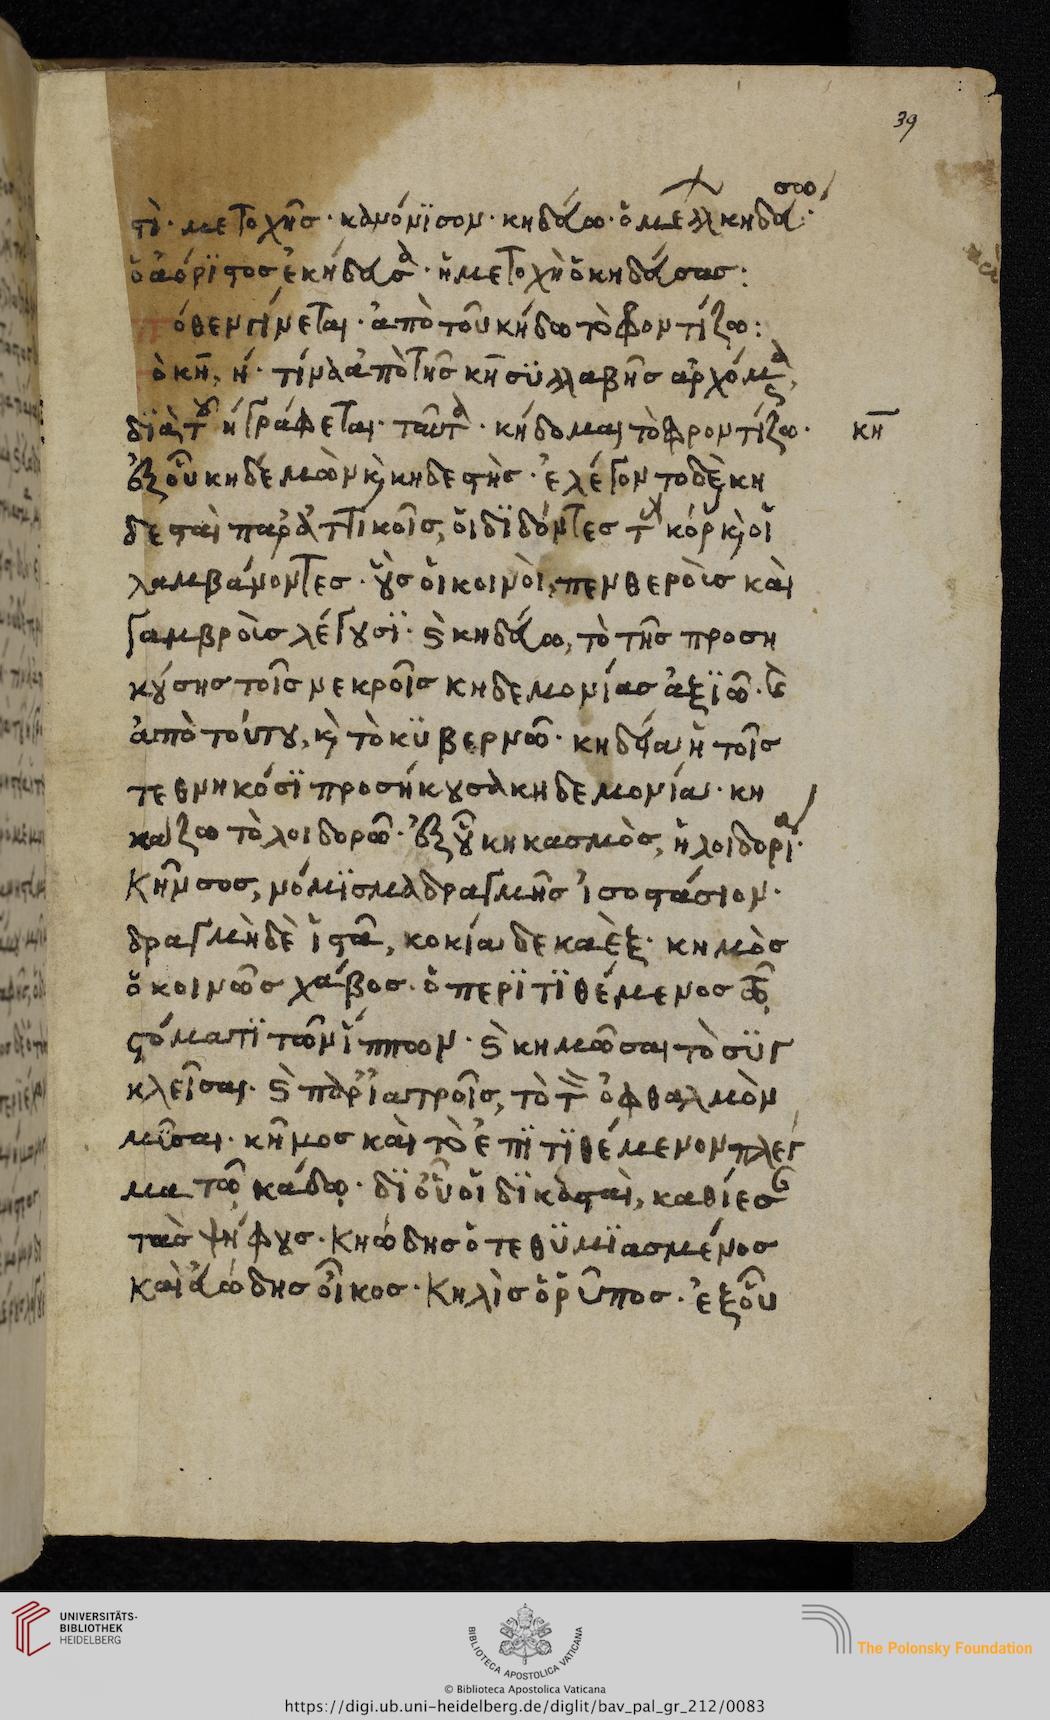 39
στὶ· μετοχῆς· κανόνϊσον· κηδεύω· ὁ μέλλ κηδεύσω
ὁ ἀόρϊστος ἐκήδευσα· ἡ μετοχὴ ὁ κηδεύσας:
πόθεν γίνεται· ἀπὸ τοῦ κήδω τὸ φροντίζω:
τίνα ἀπὸ τῆς κη συλλαβῆς ἀρχόμενα
διὰ τοῦ η γράφεται· ταῦτα· κήδομαι τὸ φροντίζω·
κη
ἐξ οὗ κηδεμὼν κὶ κηδεστὴς· ἐλέγοντο δὲ κη
δεσταὶ παρ' ἀττικοῖς, οἱ δϊδόντες τ κόρ κὶ οἱ
λαμβάνοντες· οὓς οἱ κοινοὶ, πενθεροὺς καὶ
γαμβροὺς λέγουσϊ· κηδεύω, τὸ τῆς προση
κούσης τοῖς νεκροῖς κηδεμονίας ἀξϊῶ·
ἀπὸ τούτου, κὶ τὸ κϋβερνῶ· κηδεία ἡ τοῖς
τεθνηκόσϊ προσήκουσα κηδεμονία· κη
κάζω τὸ λοιδορῶ· ἐξ οὗ κηκασμὸς, ἡ λοιδορία·
Κῆνσος, νόμϊσμα δραγμῆς ἰσοστάσιον·
δραγμὴ δὲ ἵστα, κοκία δεκαὲξ· κημὸς
ὁ κοινῶς χάβος· ὁ περϊτϊθέμενος ἐν
στόματϊ τῶν ἵππων· κημῶσαι τὸ σϋγ
κλεῖσαι· παρ' ἰατροῖς, τὸ τ ὀφθαλμὸν
μῦσαι· κῆμος καὶ τὸ ἐπϊτϊθέμενον πλέγ
μα τῷ κάδῳ· δϊ οὗ οἱ δϊκασταὶ, καθίεσαν
τὰς ψήφους· Κηώδης ὁ τεθϋμϊασμένος
καὶ εὐώδης οἶκος· Κηλὶς ὁ ῥῦπος· ἐξ οὗ
UNIVERSITÄTS-
BIBLIOTHEK
HEIDELBERG
BIBLIOTECA APOSTOLICA VATICANA
The Polonsky Foundation
© Biblioteca Apostolica Vaticana
https://digi.ub.uni-heidelberg.de/diglit/bav_pal_gr_212/0083